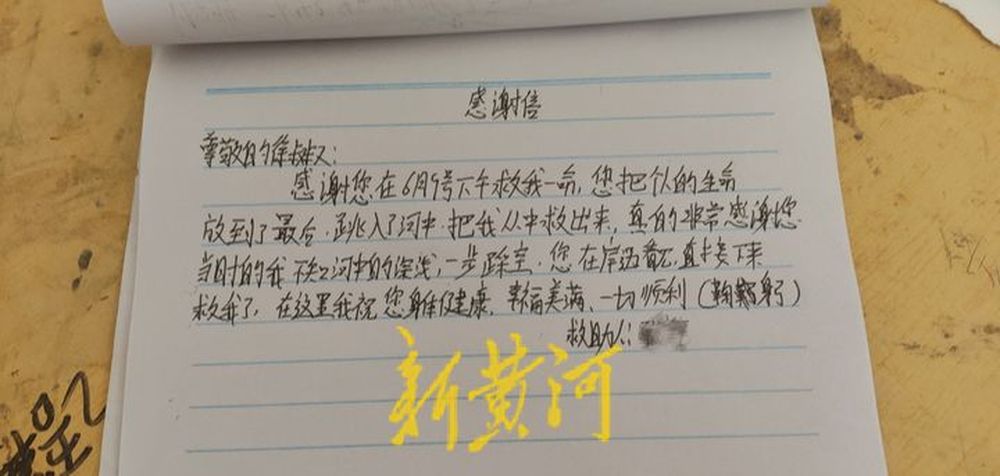 感谢信
尊敬的徐叔叔:
感谢您在6月9号下午救我一命,您把个人的生命
放到了最后.跳入了河中.把我从中救出来,真的非常感谢您.
当时的我不知河中的深浅,一步踩空.您在岸边看见直接下来
救我了,在这里我祝您身体健康,幸福美满、一切顺利(鞠躬)
救助人:
新黄河